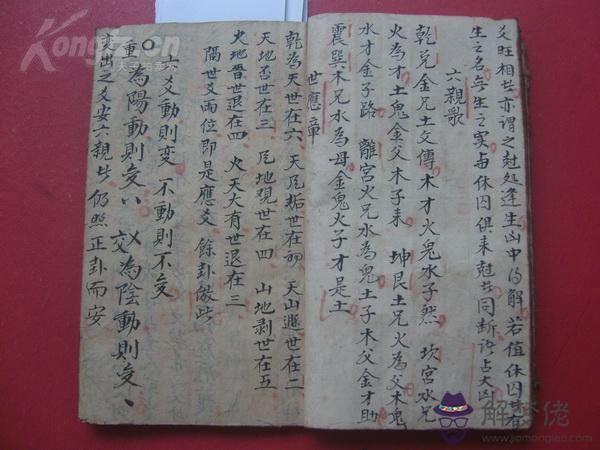 爻旺相共亦謂之尅処逢生凶中得解若值休囚
生之名無生之实与休囚俱来尅共同断诀占大凶
六親歌
乾兑金兄土父傳木才火鬼水子然坎宫水兄
火為才土鬼金父木子来坤艮土兄火為父木鬼
水才金子路離宫火兄水為鬼土子木父金才助
震巽木兄水為母金鬼火子才是土
世應章
乾為天世在六天風姤世在初天山遯世在二
天地否世在三風地覌世在四山地剥世在五
火地晋世退在四火天大有世退在三
隔世爻兩位即是應爻餘卦倣此
六爻動則変不動則不变
重為陽動則变、、交乂為陰動則变、
変出之爻安六親共仍照正卦而安
解梦佬
www.jiemenglao.com